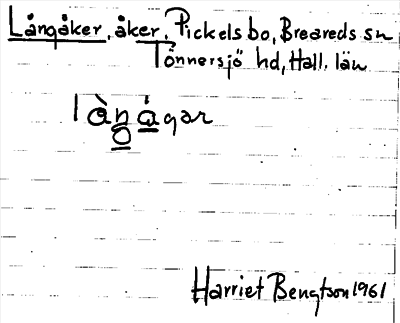 Långåker, åker, Pickelsbo, Breareds sn
Tönnersjö hd, Hall. län
làŋágar
Harriet Bengtson 1961